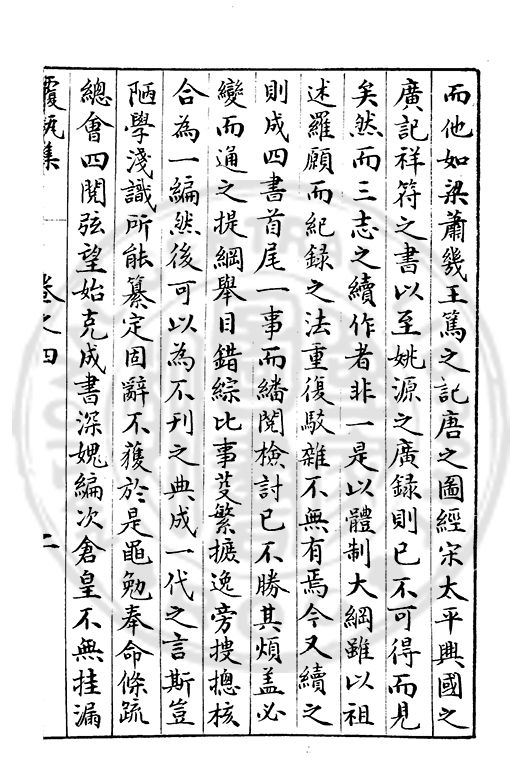 而他如梁蕭幾王篤之記唐之圖經宋太平興國之
廣記祥符之書以至姚源之廣録則已不可得而見
矣然而三志之續作者非一是以體制大綱雖以祖
述羅願而紀録之法重復駁雜不無有焉今又續之
則成四書首尾一事而繙閱檢討已不勝其煩盖必
變而通之提綱舉目錯綜比事芟繁摭逸旁搜摠核
合為一編然後可以為不刊之典成一代之言斯豈
陋學淺識所能纂定固辭不獲於是黽勉奉命條疏
總會四閱弦望始克成書深媿編次倉皇不無挂漏
覆瓿集 卷之四 二